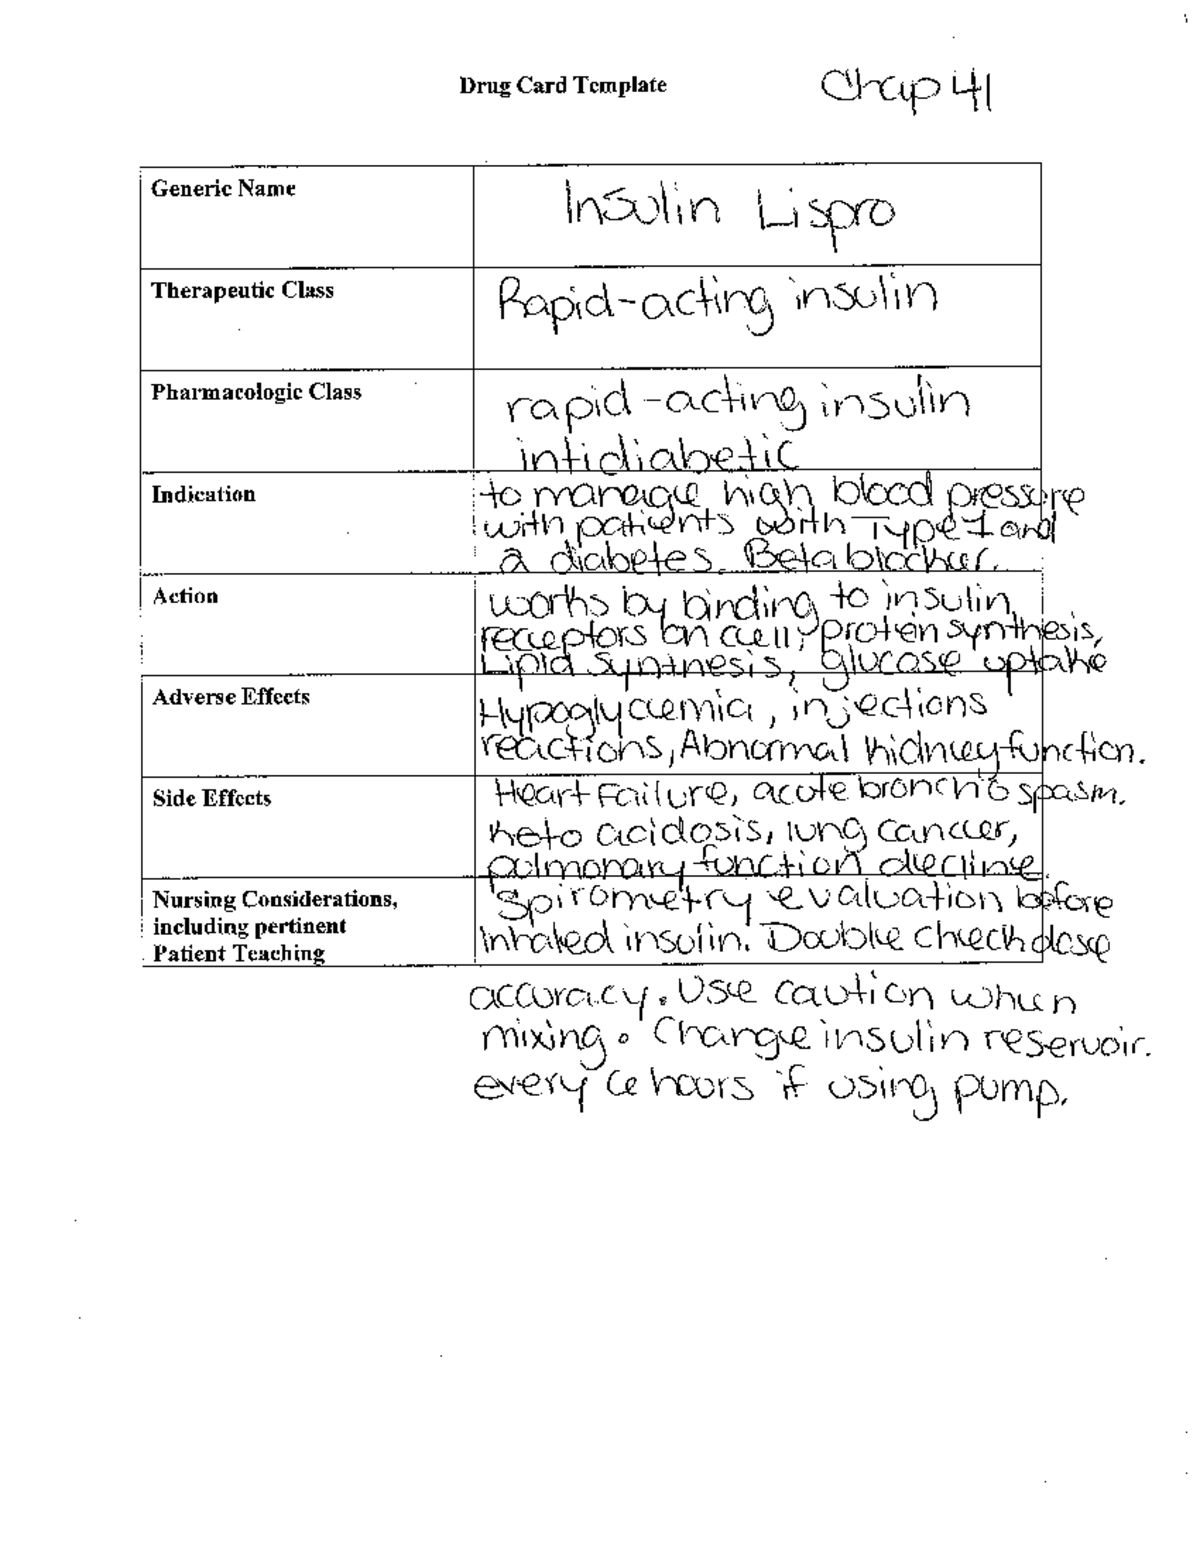 Drug Card Template
Chap 41
Generic Name
Insulin Lispro
Therapeutic Class
Rapid-acting insulin
Pharmacologic Class
rapid-acting insulin
intidiabetic
Indication
to manage high blood pressure
with patients with Type 1 and
2 diabetes. Beta blocker.
Action
works by binding to insulin
receptors on cell, protein synthesis,
Lipid synthesis, glucose uptake
Adverse Effects
Hypoglycemia, injections
reactions, Abnormal kidney function.
Side Effects
Heart Failure, acute bronchospasm.
Keto acidosis, lung cancer,
pulmonary function decline.
Nursing Considerations,
including pertinent
Patient Teaching
Spirometry evaluation before
Inhaled insulin. Double check dose
accuracy. Use caution when
mixing. Change insulin reservoir.
every 6 hours if using pump.